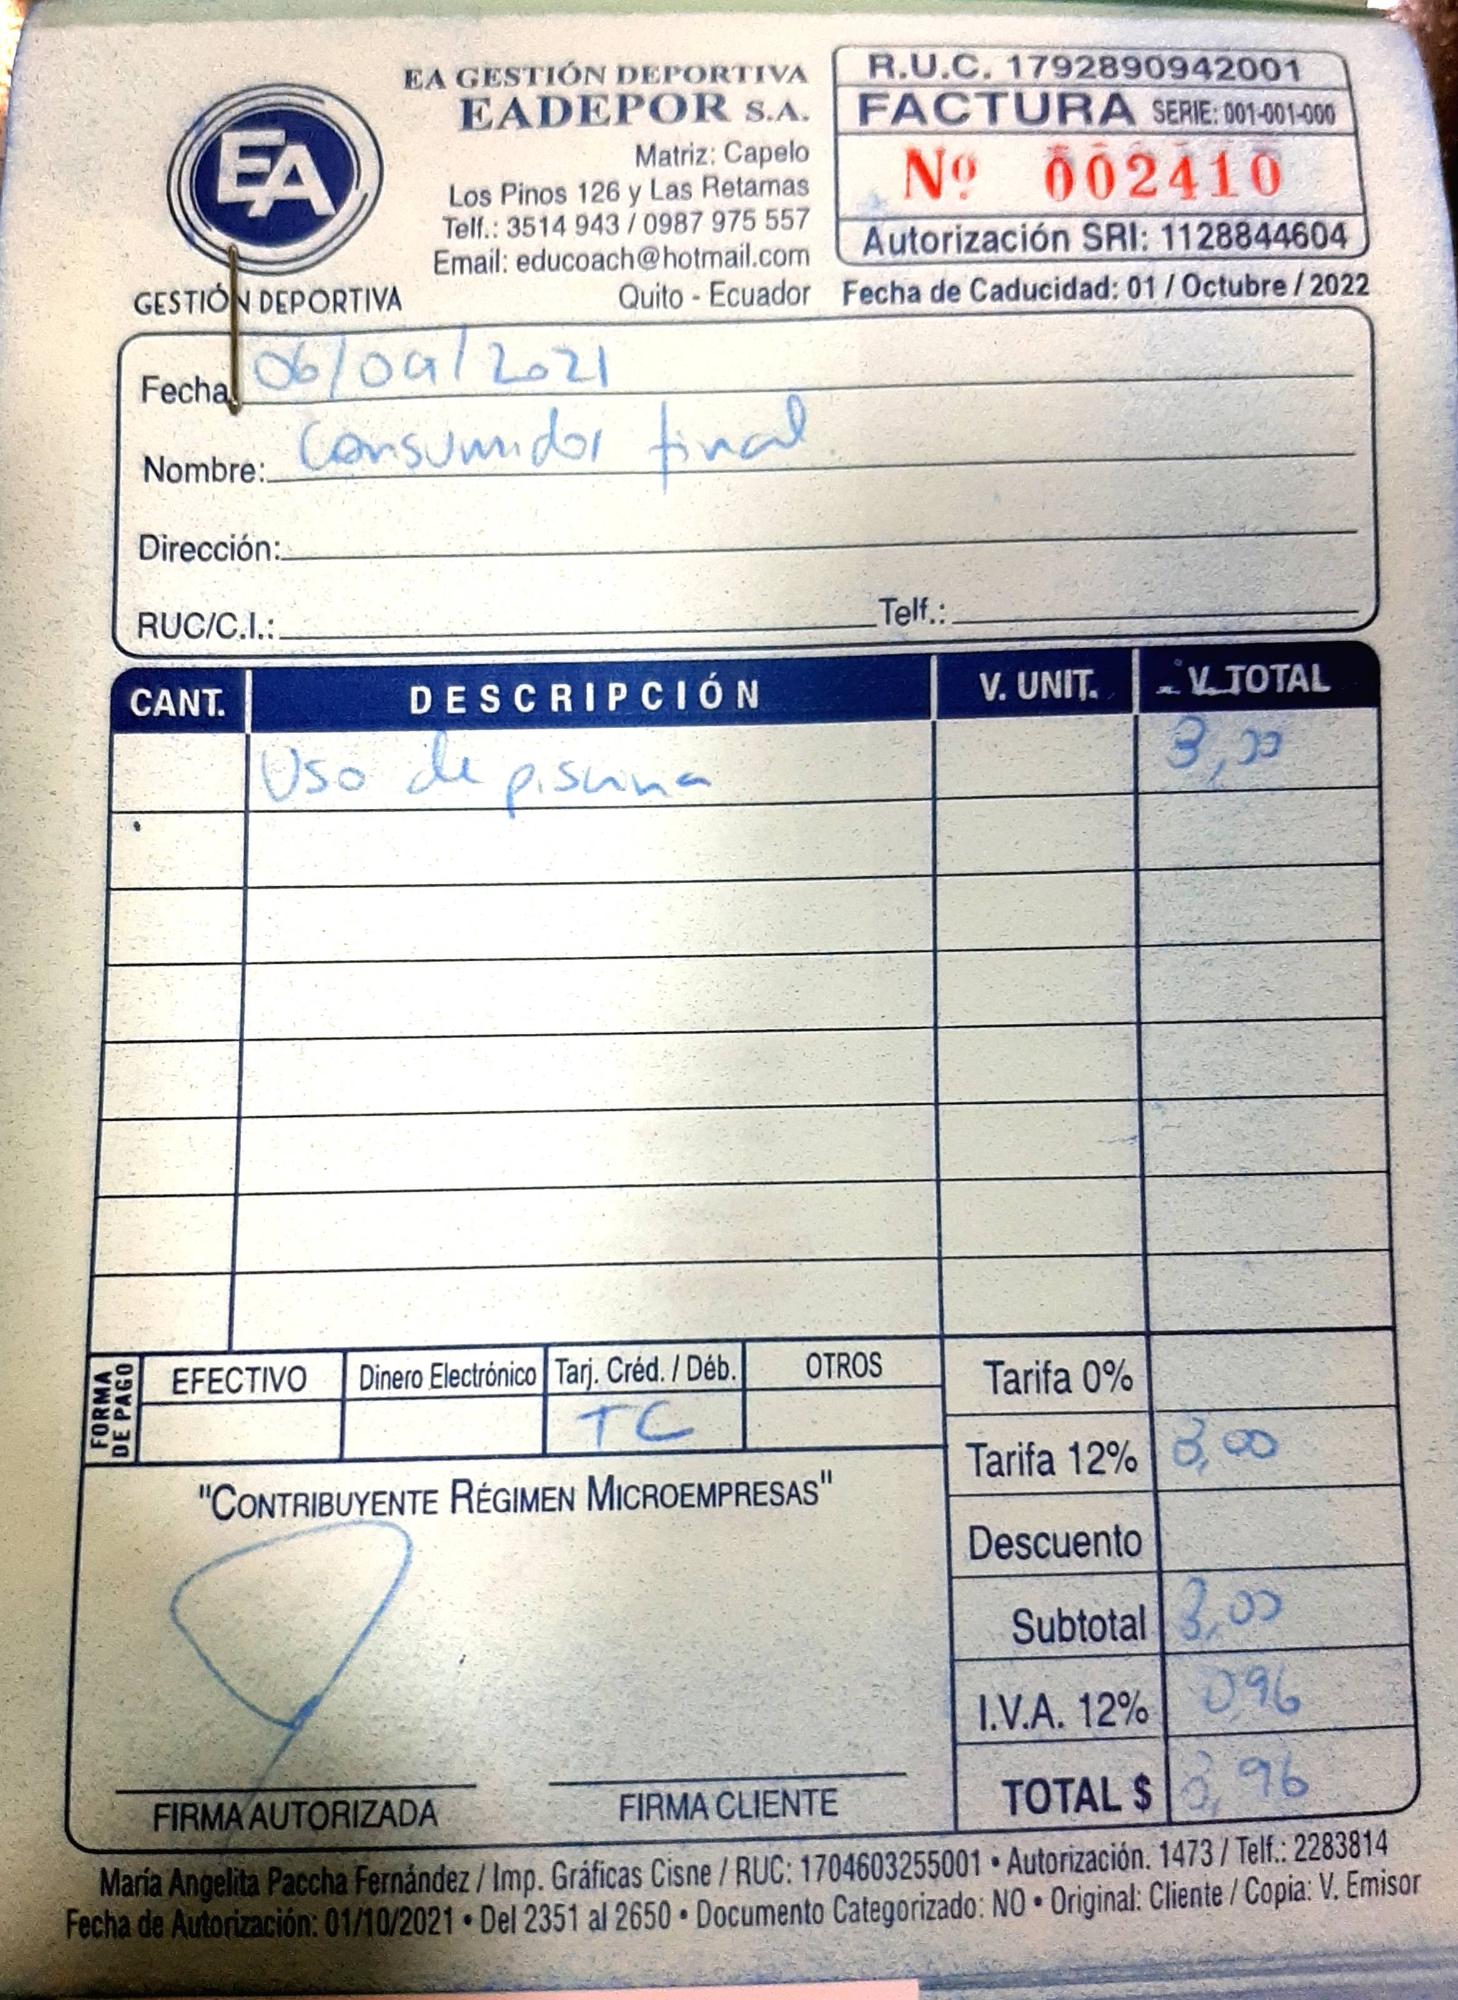 EA
GESTIÓN DEPORTIVA
EA GESTIÓN DEPORTIVA
EADEPOR S.A.
Matriz: Capelo
Los Pinos 126 y Las Retamas
Telf.: 3514 943 / 0987 975 557
Email: educoach@hotmail.com
Quito - Ecuador
R.U.C. 1792890942001
FACTURA SERIE: 001-001-000
Nº 002410
Autorización SRI: 1128844604
Fecha de Caducidad: 01 / Octubre / 2022
Fecha 06/09/2021
Nombre: Consumidor final
Dirección:
RUC/C.I.: Telf.:
CANT. DESCRIPCIÓN V. UNIT. V. TOTAL
Uso de piscina 3,00
FORMA DE PAGO
EFECTIVO Dinero Electrónico Tarj. Créd. / Déb. OTROS
TC
Tarifa 0%
Tarifa 12% 3,00
Descuento
Subtotal 3,00
I.V.A. 12% 0,96
TOTAL $ 3,96
"CONTRIBUYENTE RÉGIMEN MICROEMPRESAS"
FIRMA AUTORIZADA FIRMA CLIENTE
María Angelita Paccha Fernández / Imp. Gráficas Cisne / RUC: 1704603255001 • Autorización. 1473 / Telf.: 2283814
Fecha de Autorización: 01/10/2021 • Del 2351 al 2650 • Documento Categorizado: NO • Original: Cliente / Copia: V. Emisor